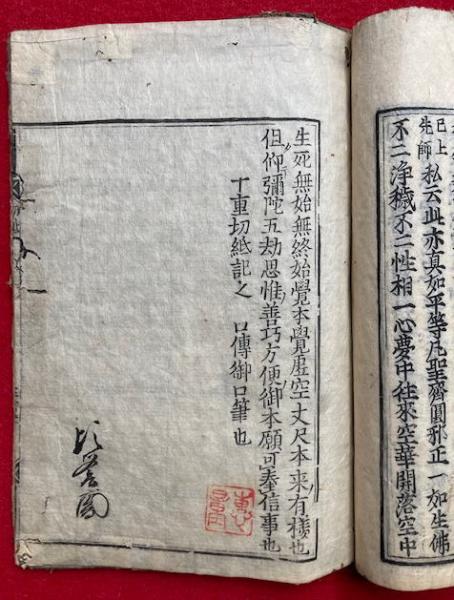 已上
先師
私云此亦真如平等凡聖齊圓邪正一如生佛
不二浄穢不二性相一心夢中往來空華開落空中
生死無始無終始覺本覺虚空丈尺本来有様也
但仰彌陀五劫思惟善巧方便御本願可奉信事也
十重切紙記之 口傳御口筆也